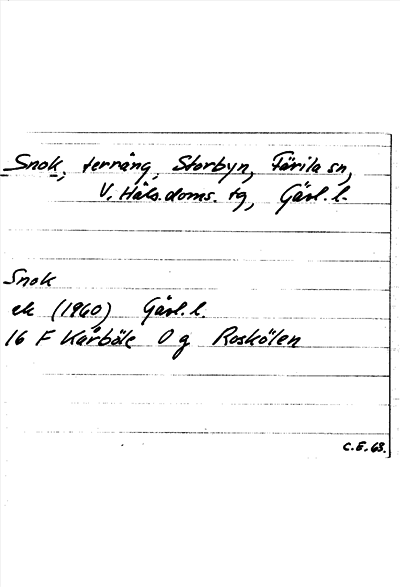 Snok, terräng, Storbyn, Färila sn,
V. Häls. doms. tg, Gävl. l.
Snok
ek (1960) Gävl. l.
16 F Kårböle 0 g Roskölen
C.E.63.